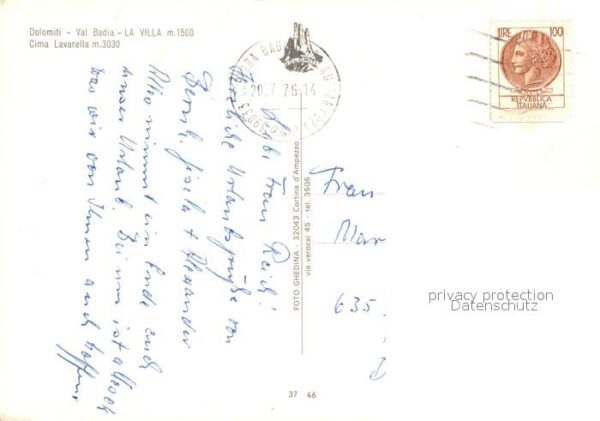 Dolomiti - Val Badia - LA VILLA m.1500
Cima Lavarella m.3030
20.7.76-14
LIRE 100
REPVBBLICA
ITALIANA
Liebe Frau Reich!
Herzliche Urlaubsgrüße von
Gisela + Alexander
Also nimmt ein Ende auch
unser Urlaub. Bei uns ist alles
was wir von Ihnen auch hoffen.
FOTO GHEDINA - 32043 Cortina d'Ampezzo
via verocai 45 - tel. 3505
Frau
Mar
635
privacy protection
Datenschutz
37 46